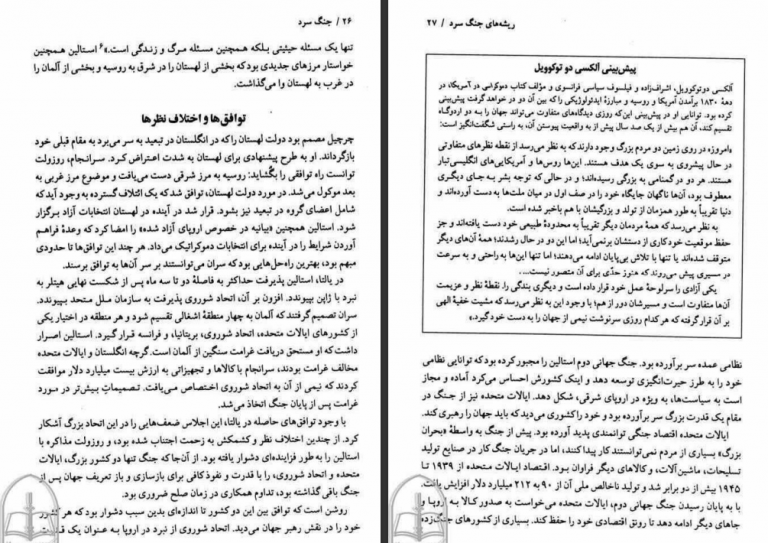 ۲۶ / جنگ سرد
تنها یک مسئله حیثیتی بلکه همچنین مسئله مرگ و زندگی است.»۶ استالین همچنین
خواستار مرزهای جدیدی بود که بخشی از لهستان را در شرق به روسیه و بخشی از آلمان را
در غرب به لهستان وا می‌گذاشت.
توافق‌ها و اختلاف نظرها
چرچیل مصمم بود دولت لهستان را که در انگلستان در تبعید به سر می‌برد به مقام قبلی خود
بازگرداند. او به طرح پیشنهادی برای لهستان به شدت اعتراض کرد. سرانجام، روزولت
توانست راه توافقی را بگشاید: روسیه به مرز شرقی دست می‌یافت و موضوع مرز غربی به
بعد موکول می‌شد. در مورد دولت لهستان، توافق شد که یک ائتلاف گسترده به وجود آید که
شامل اعضای گروه در تبعید نیز بشود. قرار شد در آینده در لهستان انتخابات آزاد برگزار
بشود. استالین همچنین «بیانیه در خصوص اروپای آزاد شده» را امضا کرد که وعدهٔ فراهم
آوردن شرایط را در آینده برای انتخابات دموکراتیک می‌داد. هر چند این توافق‌ها تا حدودی
مبهم بود، بهترین راه‌حل‌هایی بود که سران می‌توانستند بر سر آن‌ها به توافق برسند.
در یالتا، استالین پذیرفت حداکثر به فاصلهٔ دو تا سه ماه پس از شکست نهایی هیتلر به
نبرد با ژاپن بپیوندد. افزون بر آن، اتحاد شوروی پذیرفت به سازمان ملل متحد بپیوندد.
سران تصمیم گرفتند که آلمان به چهار منطقهٔ اشغالی تقسیم شود و هر منطقه در اختیار یکی
از کشورهای ایالات متحده، اتحاد شوروی، بریتانیا، و فرانسه قرار گیرد. استالین اصرار
داشت که او مستحق دریافت غرامت سنگین از آلمان است. گرچه انگلستان و ایالات متحده
مخالف غرامت بودند، سرانجام با کالاها و تجهیزاتی به ارزش بیست میلیارد دلار موافقت
کردند که نیمی از آن به اتحاد شوروی اختصاص می‌یافت. تصمیمات بیش‌تر در مورد
غرامت پس از پایان جنگ اتخاذ می‌شد.
با وجود توافق‌های حاصله در یالتا، این اجلاس ضعف‌هایی را در این اتحاد بزرگ آشکار
کرد. از چندین اختلاف نظر و کشمکش به زحمت اجتناب شده بود، و روزولت مذاکره با
استالین را به طور فزاینده‌ای دشوار یافته بود. از آن‌جا که جنگ تنها دو کشور بزرگ، ایالات
متحده و اتحاد شوروی، را با قدرت و نفوذ کافی برای بازسازی و باز تعریف جهان پس از
جنگ باقی گذاشته بود، تداوم همکاری در زمان صلح ضروری بود.
روشن است که توافق بین این دو کشور تا اندازه‌ای بدین سبب دشوار بود که هر کشور
خود را در نقش رهبر جهان می‌دید. اتحاد شوروی از نبرد در اروپا به عنوان یک قدرت
ریشه‌های جنگ سرد / ۲۷
پیش‌بینی آلکسی دو توکوویل
آلکسی دوتوکوویل، اشراف‌زاده و فیلسوف سیاسی فرانسوی و مؤلف کتاب دموکراسی در آمریکا، در
دههٔ ۱۸۳۰ برآمدن آمریکا و روسیه و مبارزهٔ ایدئولوژیکی را که بین آن دو در خواهد گرفت پیش‌بینی
کرده بود. توانایی او در پیش‌بینی این‌که روزی دیدگاه‌های متفاوت می‌تواند جهان را به دو اردوگاه
تقسیم کند، آن هم بیش از یک صد سال پیش از به واقعیت پیوستن آن، به راستی شگفت‌انگیز است:
«امروزه در روی زمین دو مردم بزرگ وجود دارند که به نظر می‌رسد از نقطه نظرهای متفاوتی
در حال پیشروی به سوی یک هدف هستند. این‌ها روس‌ها و آمریکایی‌های انگلیسی‌تبار
هستند. هر دو در گمنامی به بزرگی رسیده‌اند؛ و در حالی که توجه بشر به جای دیگری
معطوف بود، آن‌ها ناگهان جایگاه خود را در صف اول در میان ملت‌ها به دست آورده‌اند و
دنیا تقریباً به طور همزمان از تولد و بزرگیشان با هم باخبر شده است.
به نظر می‌رسد که همهٔ مردمان دیگر تقریباً به محدودهٔ طبیعی خود دست یافته‌اند و جز
حفظ موقعیت خود کاری از دستشان برنمی‌آید؛ اما این دو در حال رشدند؛ همهٔ آن‌های دیگر
متوقف شده‌اند یا تنها با تلاش بی‌پایان ادامه می‌دهند؛ اما تنها این‌ها به راحتی و به سرعت
در مسیری پیش می‌روند که هنوز حدّی برای آن متصور نیست...
یکی آزادی را سرلوحهٔ عمل خود قرار داده است و دیگری بندگی را. نقطهٔ نظر و عزیمت
آن‌ها متفاوت است و مسیرشان دور از هم؛ با وجود این به نظر می‌رسد که مشیت خفیهٔ الهی
بر آن قرار گرفته که هر کدام روزی سرنوشت نیمی از جهان را به دست خود گیرد.»
نظامی عمده سر برآورده بود. جنگ جهانی دوم استالین را مجبور کرده بود که توانایی نظامی
خود را به طرز حیرت‌انگیزی توسعه دهد و اینک کشورش احساس می‌کرد آماده و مجاز
است به سیاست‌ها، به ویژه در اروپای شرقی، شکل دهد. ایالات متحده نیز از جنگ در
مقام یک قدرت بزرگ سر برآورده بود و خود را کشوری می‌دید که باید جهان را رهبری کند.
ایالات متحده اقتصاد جنگی توانمندی پدید آورده بود. پیش از جنگ به واسطهٔ «بحران
بزرگ» بسیاری از مردم نمی‌توانستند کار پیدا کنند، اما در جریان جنگ کار در صنایع تولید
تسلیحات، ماشین‌آلات، و کالاهای دیگر فراوان بود. اقتصاد ایالات متحده از ۱۹۳۹ تا
۱۹۴۵ بیش از دو برابر شد و تولید ناخالص ملی آن از ۹۰ به ۲۱۲ میلیارد دلار افزایش یافت.
با به پایان رسیدن جنگ جهانی دوم، ایالات متحده می‌خواست به صدور کالا به اروپا و
جاهای دیگر ادامه دهد تا رونق اقتصادی خود را حفظ کند. بسیاری از کشورهای جنگ‌زده